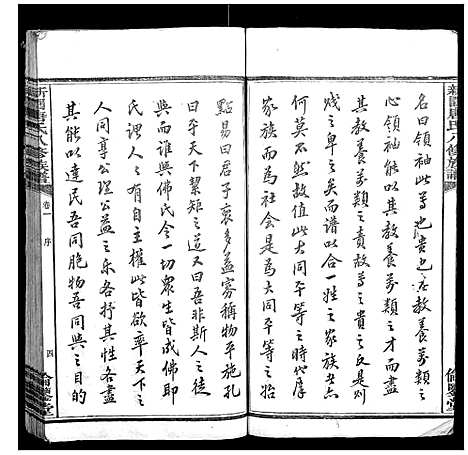 新圖唐氏八修族譜
倫鑒堂
名曰領袖此學也貴也在教養萬類之
心領袖能以其教養萬類之才而盡
其教養萬類之責故尊之貴之反是則
賤之卑之矣而譜以合一姓之家族者亦
何莫不然故值此大同平等之時代厚
家族為社會是為大同平等之始
點易曰君子裒多益寡稱物平施孔
曰平天下絜矩之道又曰吾非斯人之徒
與而誰與佛氏令一切衆生皆成佛即
氏謂人人有自主權此皆欲率天下之
人同享公理公益之樂各抒其性各盡
其能以達民吾同胞物吾同與之目的
新圖唐氏八修族譜
卷一
序
四
倫鑒堂